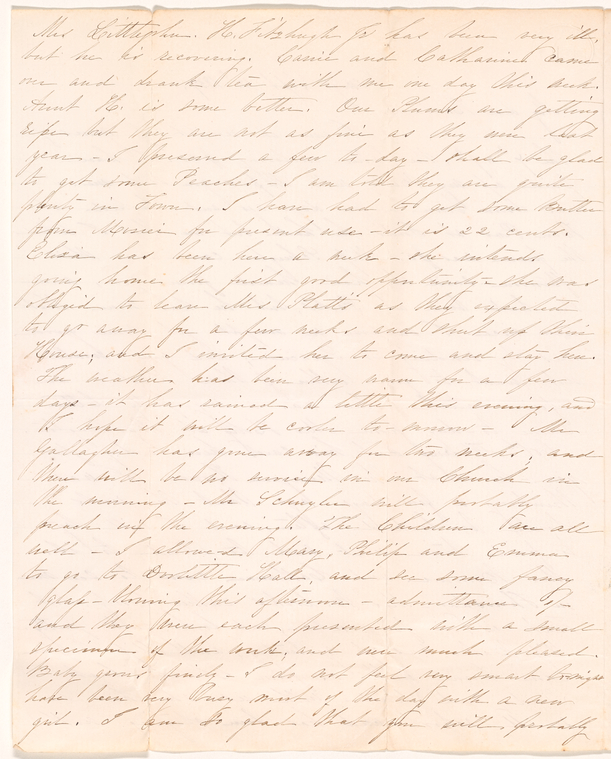 Mrs Littlejohn. H. Fitzhugh Jr has been very ill,
but he is recovering. Carrie and Catharine came
over and drank tea with me one day this week.
Aunt H. is some better. Our Plums are getting
ripe but they are not as fine as they were last
year - I preserved a few to-day - shall be glad
to get some Peaches - I am told they are quite
plenty in Town. I have had to get some Butter
from for present use - it is 22 cents.
Eliza has been here a week - she intends
going home the first good opportunity - she was
obliged to leave Mrs Platts as they expected
to go away for a few weeks and shut up their
House, and I invited her to come and stay here.
The weather has been very warm for a few
days - it has rained a little this evening, and
I hope it will be cooler to-morrow - Mr
Gallagher has gone away for two weeks, and
there will be no service in our Church in
the morning - Mr Schuyler will probably
preach in the evening. The Children are all
well - I allowed Mary, Philip and Emma
to go to Doolittle Hall, and see some fancy
glass-blowing this afternoon - admittance
and they were each presented with a small
specimen of the work, and were much pleased.
Baby grows finely - I do not feel very smart to-night
have been very busy most of the day with a new
girl. I am so glad that you will probably